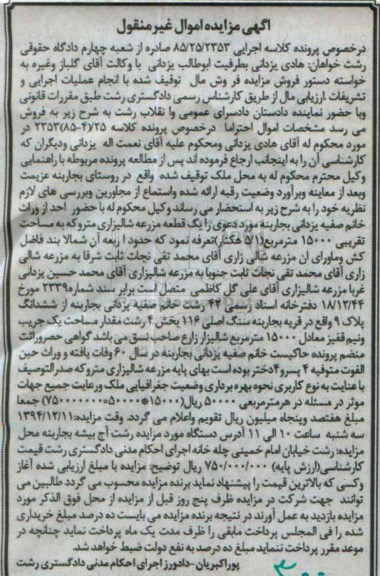 آگهی مزایده اموال غیر منقول
درخصوص پرونده کلاسه اجرایی ۸۵/۲۵/۲۳۵۳ صادره از شعبه چهارم دادگاه حقوقی
رشت خواهان: هادی یزدانی بطرفیت ابوطالب یزدانی با وکالت آقای گلباز وغیره به
خواسته دستور فروش مزایده فر وش مال توقیف شده با انجام عملیات اجرایی و
تشریفات ارزیابی مال از طریق کارشناس رسمی دادگستری رشت طبق مقررات قانونی
وبا حضور نماینده دادستان دادسرای عمومی وا نقلاب رشت به شرح زیر به فروش
می رسد مشخصات اموال احتراما درخصوص پرونده کلاسه ۴/۲۵-۲۳۵۳(۸۵
مورد محکوم له آقای هادی یزدانی ومحکوم علیه آقای نعمت اله یزدانی ودیگران که
کارشناسی آن را به اینجانب ارجاع فرموده اند پس از مطالعه پرونده مربوطه با راهنمایی
وکیل محترم محکوم له به محل ملک توقیف شده واقع در روستای بجاربنه عزیمت
وبعد از معاینه وبرآورد وضعیت رقبه ارائه شده واستماع از مجاورین وبررسی های لازم
نظریه خود را به شرح زیر به استحضار می رساند وکیل محکوم له با حضور احد از وراث
خانم صفیه یزدانی بجاربنه مورد دعوی را یک قطعه مزرعه شالیزاری متروکه به مساحت
تقریبی ۱۵۰۰۰ مترمربع(۱/۵ هکتار)تعرفه نمود که حدود ا ربعه آن شمالا بند فاضل
کش وماورای ان مزرعه شالی زاری آقای محمد تقی نجات ثابت شرقا به مزرعه شالی
زاری آقای محمد تقی نجات ثابت جنوبا به مزرعه شالیزاری آقای محمد حسین یزدانی
غربا مزرعه شالیزاری آقای علی گل کاظمی متصل است برابر سند شماره۲۳۳۹ مورخ
۱۸/۱۲/۴۴ دفترخانه اسناد رسمی ۴۳ رشت خانم صفیه یزدانی بجاربنه از ششدانگ
پلاک ۹ واقع در قریه بجاربنه سنگ اصلی ۱۱۶ بخش ۴ رشت مقدار مساحت یک جریب
ونیم قفیز معادل ۱۵۰۰۰ مترمربع شالیزار زارع صاحب نسق می باشد گواهی حصروراثت
منضم پرونده حاکیست خانم صفیه یزدانی بجاربنه در سال ۶۰ وفات یافته و وراث حین
الفوت متوفیه ۴ پسرو۴دختر بوده است بهای پایه مزرعه شالیزاری متروکه صدرالتوصیف
با عنایت به نوع کاربری نحوه بهره برداری وضعیت جغرافیایی ملک ورعایت جمیع جهات
موثر در مسئله در هرمترمربعی ۵۰۰۰۰ ریال(۱۵۰۰۰*۵۰۰۰۰=۷۵۰۰۰۰۰۰۰) جمعا
مبلغ هفتصد وپنجاه میلیون ریال تقویم واعلام می گردد. وقت مزایده:۱۳۹۴/۱۲/۱۱
سه شنبه ساعت ۱۰ الی ۱۱ آدرس دستگاه مورد مزایده رشت آج بیشه بجاربنه محل
مزایده: رشت خیابان امام خمینی چله خانه اجرای احکام مدنی دادگستری رشت قیمت
کارشناسی(ارزش پایه) ۷۵۰/۰۰۰/۰۰۰ ریال توضیح مزایده با مبلغ ارزیابی شده آغاز
وکسی که بالاترین قیمت را پیشنهاد نماید برنده مزایده محسوب می گردد طالبین می
توانند جهت شرکت در مزایده ظرف پنج روز قبل از مزایده از محل فوق الذکر مورد
مزایده بازدید به عمل آورند در نتیجه برنده مزایده می بایست ده درصد مبلغ خریداری
شده را فی المجلس پرداخت مابقی را ظرف مدت یک ماه پرداخت نماید چنانچه در
موعد مقرر پرداخت ننماید مبلغ ده درصد به نفع دولت ضبط خواهد شد.
پوراکبریان-دادورز اجرای احکام مدنی دادگستری رشت